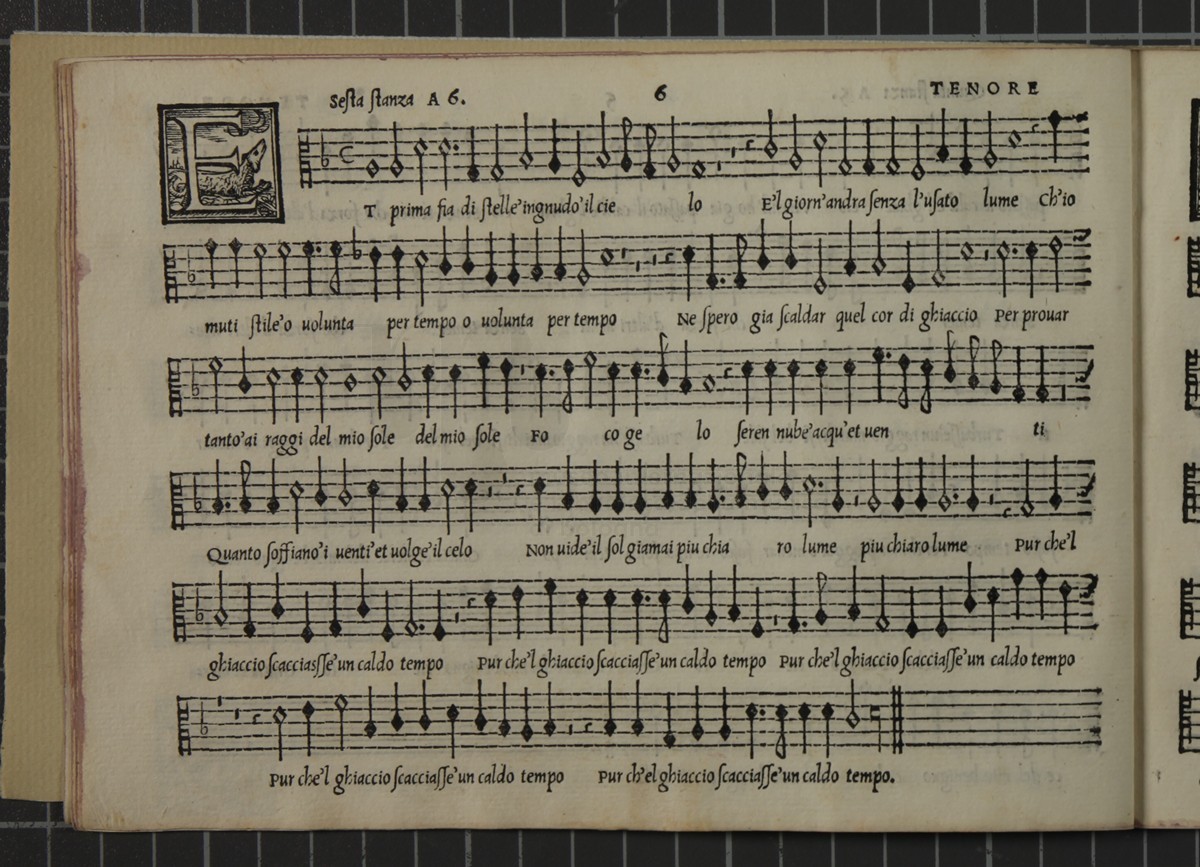 Sesta stanza A 6. 6 TENORE
ET prima fia di stelle'ingnudo'il cie lo E'l giorn'andra senza l'usato lume ch'io
muti stile'o uolunta per tempo o uolunta per tempo Ne spero gia scaldar quel cor di ghiaccio Per prouar
tanto'ai raggi del mio sole del mio sole Fo co ge lo seren nube'acqu'et uen ti
Quanto soffiano'i uenti'et uolge'il celo Non uide'il sol giamai piu chia ro lume piu chiaro lume Pur che'l
ghiaccio scacciassse'un caldo tempo Pur che'l ghiaccio scacciasse'un caldo tempo Pur che'l ghiaccio scacciasse'un caldo tempo
Pur che'l ghiaccio scacciasse'un caldo tempo Pur ch'el ghiaccio scacciasse'un caldo tempo.